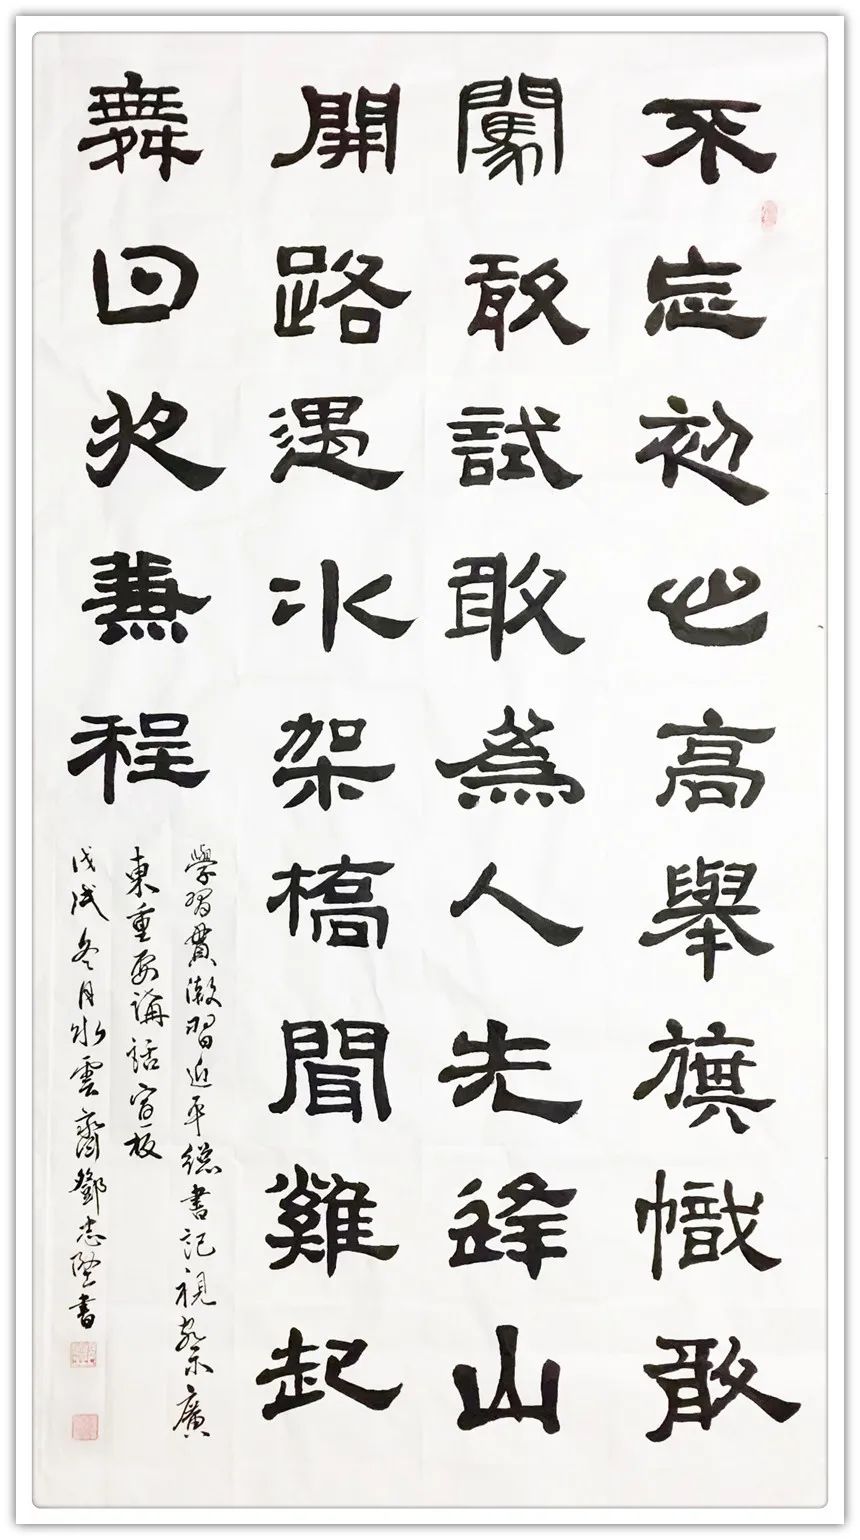 不忘初心高舉旗幟敢
闖敢試敢爲人先逢山
開路遇水架橋聞雞起
舞日夜兼程
學習貫澈習近平總書記視察廣
東重要講話宣板
戊戌冬月水雲齋鄧志堅書